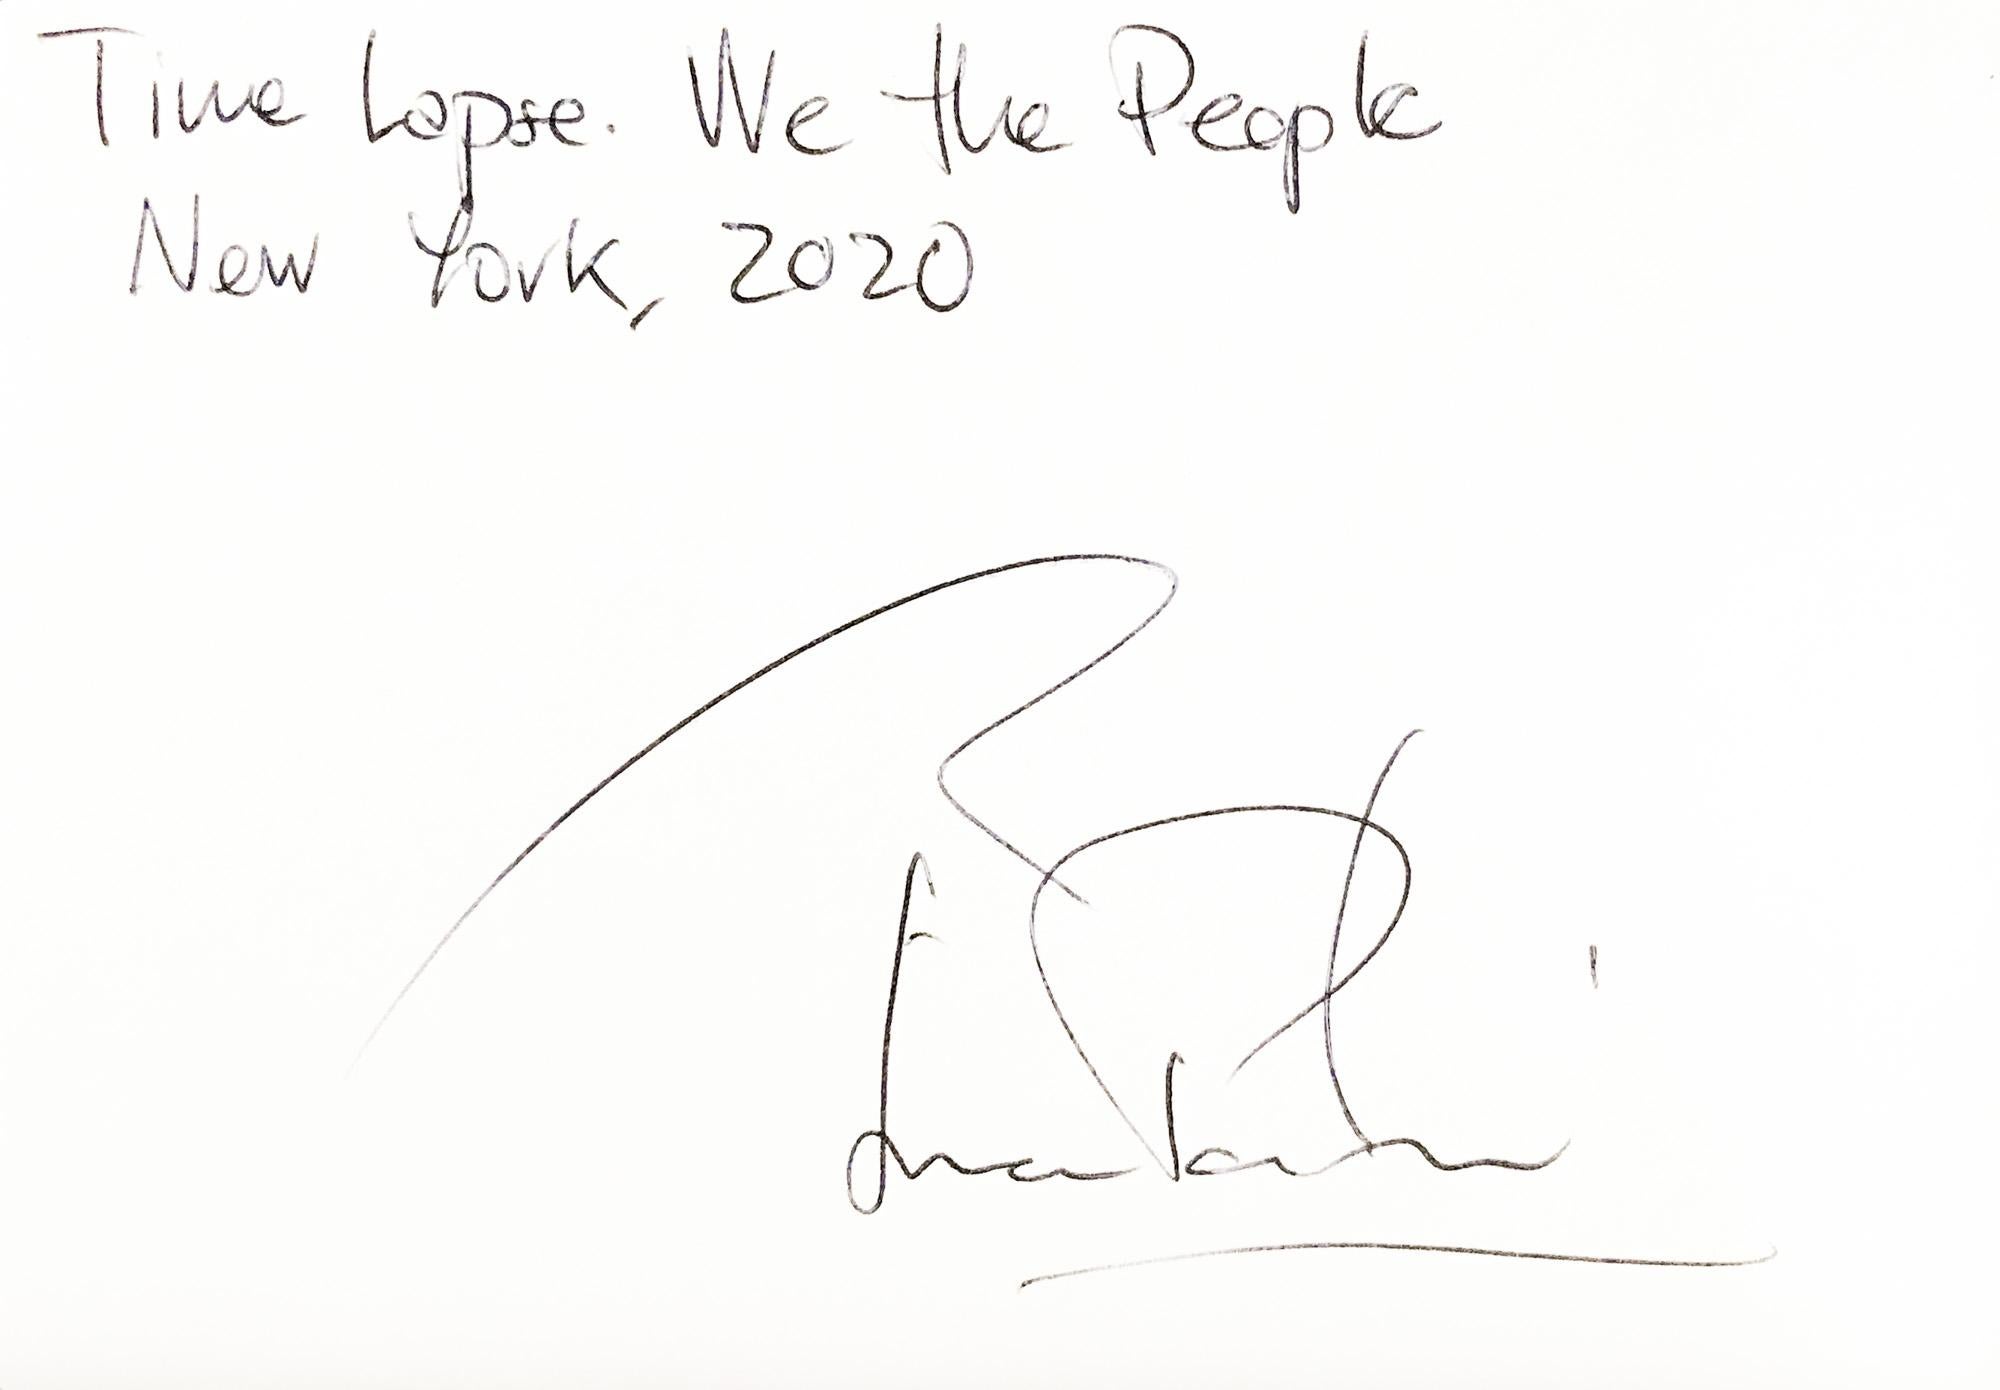 Time Lapse. We the People
New York, 2020